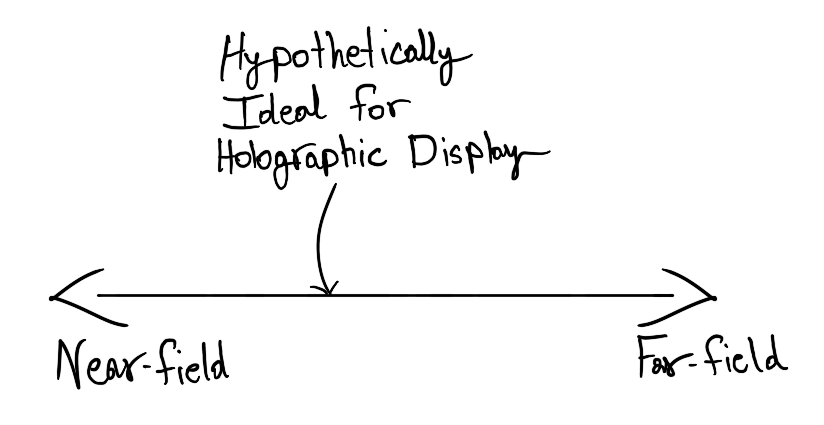 Hypothetically
Ideal for
Holographic Display
Near-field
Far-field